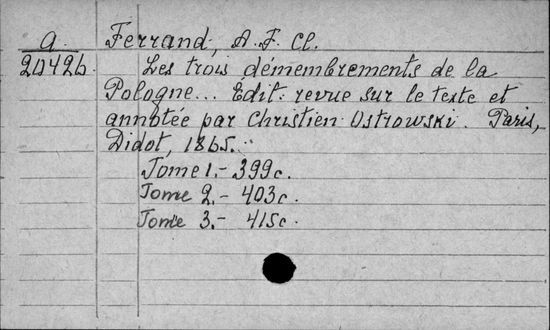 a. Ferrand, A. F. Cl.
20426. Les trois démembrements de la
Pologne... Édit. revue sur le texte et
annotée par Christien Ostrowski. Paris,
Didot, 1865.
Tome 1.- 399c.
Tome 2.- 403c.
Tome 3.- 415c.